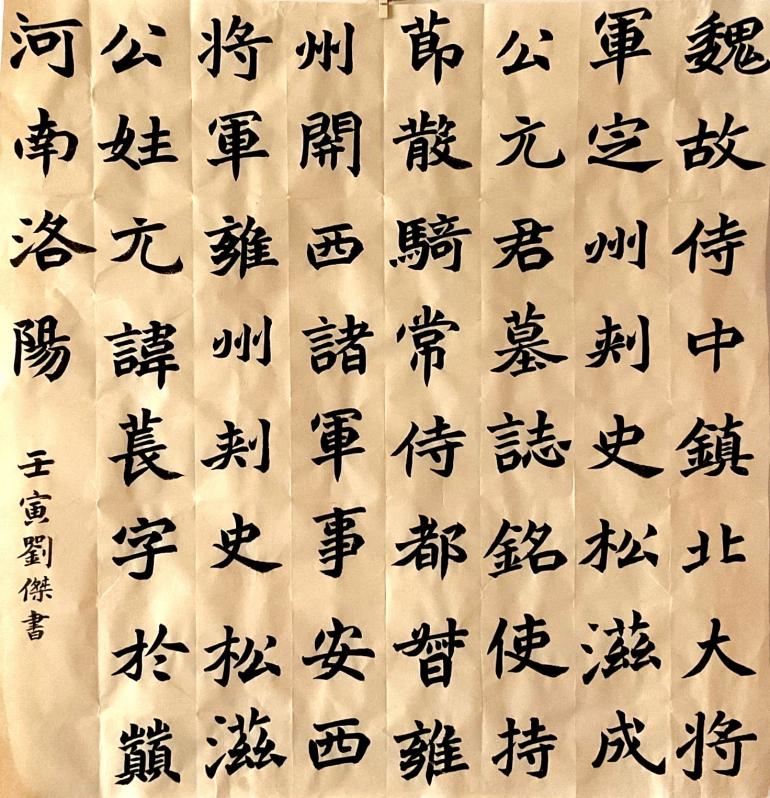 魏故侍中鎮北大将
軍定州刾史松滋成
公亢君墓誌銘使持
莭散騎常侍都督雍
州開西諸軍事安西
将軍雍州刾史松滋
公姓亢諱萇字於巔
河南洛陽
壬寅劉傑書